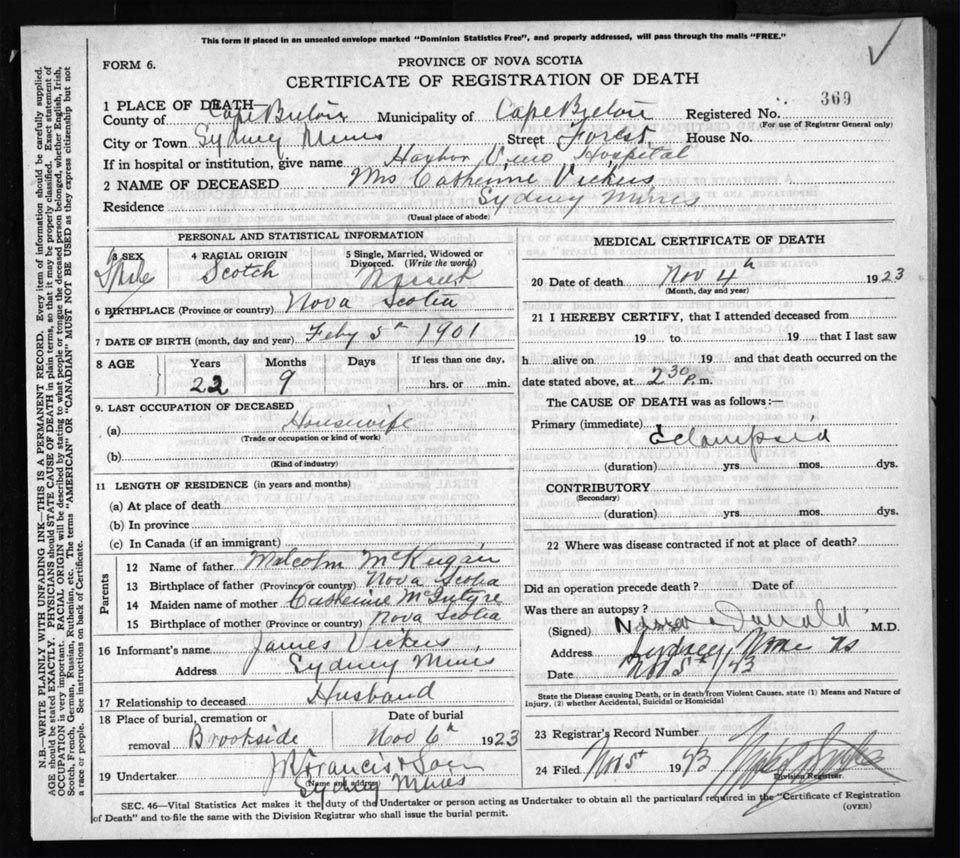 This form if placed in an unsealed envelope marked "Dominion Statistics Free", and properly addressed, will pass through the mails "FREE."
FORM 6.
PROVINCE OF NOVA SCOTIA
CERTIFICATE OF REGISTRATION OF DEATH
1 PLACE OF DEATH—
County of Cape Breton Municipality of Cape Breton Registered No. 369
(For use of Registrar General only)
City or Town Sydney Mines Street Forest House No.
If in hospital or institution, give name Harbor View Hospital
2 NAME OF DECEASED Mrs Catherine Vickers
Residence Sydney Mines
(Usual place of abode)
PERSONAL AND STATISTICAL INFORMATION
3 SEX 4 RACIAL ORIGIN 5 Single, Married, Widowed or Divorced. (Write the word)
Scotch Married
6 BIRTHPLACE (Province or country) Nova Scotia
7 DATE OF BIRTH (month, day and year) Feby 5th 1901
8 AGE Years Months Days If less than one day,
22 9 hrs. or min.
9. LAST OCCUPATION OF DECEASED
(a) Housewife
(Trade or occupation or kind of work)
(b)
(Kind of industry)
11 LENGTH OF RESIDENCE (in years and months)
(a) At place of death
(b) In province
(c) In Canada (if an immigrant)
Parents
12 Name of father Malcolm McKugan
13 Birthplace of father (Province or country) Nova Scotia
14 Maiden name of mother Catherine McIntyre
15 Birthplace of mother (Province or country) Nova Scotia
16 Informant's name James Vickers
Address Sydney Mines
17 Relationship to deceased Husband
18 Place of burial, cremation or removal Brookside Date of burial Nov 6th 1923
19 Undertaker J Francis & Son
(Name and address)
Sydney Mines
MEDICAL CERTIFICATE OF DEATH
20 Date of death Nov 4th 1923
(Month, day and year)
21 I HEREBY CERTIFY, that I attended deceased from
19 to 19 that I last saw
h alive on 19 and that death occurred on the
date stated above, at 2 30 P. m.
The CAUSE OF DEATH was as follows:—
Primary (immediate) Eclampsia
(duration) yrs. mos. dys.
CONTRIBUTORY
(Secondary)
(duration) yrs. mos. dys.
22 Where was disease contracted if not at place of death?
Did an operation precede death? Date of
Was there an autopsy?
(Signed) M.D.
Address Sydney Mines NS
Date Nov 5th
State the Disease causing Death, or in death from Violent Causes, state (1) Means and Nature of
Injury, (2) whether Accidental, Suicidal or Homicidal
23 Registrar's Record Number
24 Filed Nov 5th 19
Division Registrar.
SEC. 46—Vital Statistics Act makes it the duty of the Undertaker or person acting as Undertaker to obtain all the particulars required in the "Certificate of Registration
(OVER)
of Death" and to file the same with the Division Registrar who shall issue the burial permit.
N.B.—WRITE PLAINLY WITH UNFADING INK—THIS IS A PERMANENT RECORD. Every item of information should be carefully supplied.
AGE should be stated EXACTLY. PHYSICIANS should STATE CAUSE OF DEATH in plain terms, so that it may be properly classified. Exact statement of
OCCUPATION is very important. RACIAL ORIGIN will be described by stating to what people or tongue the deceased person belonged, whether English, Irish,
Scotch, French, German, Russian, Ruthenian, etc. The terms "AMERICAN" OR "CANADIAN" MUST NOT BE USED as they express citizenship but not
a race or people. See instructions on back of Certificate.